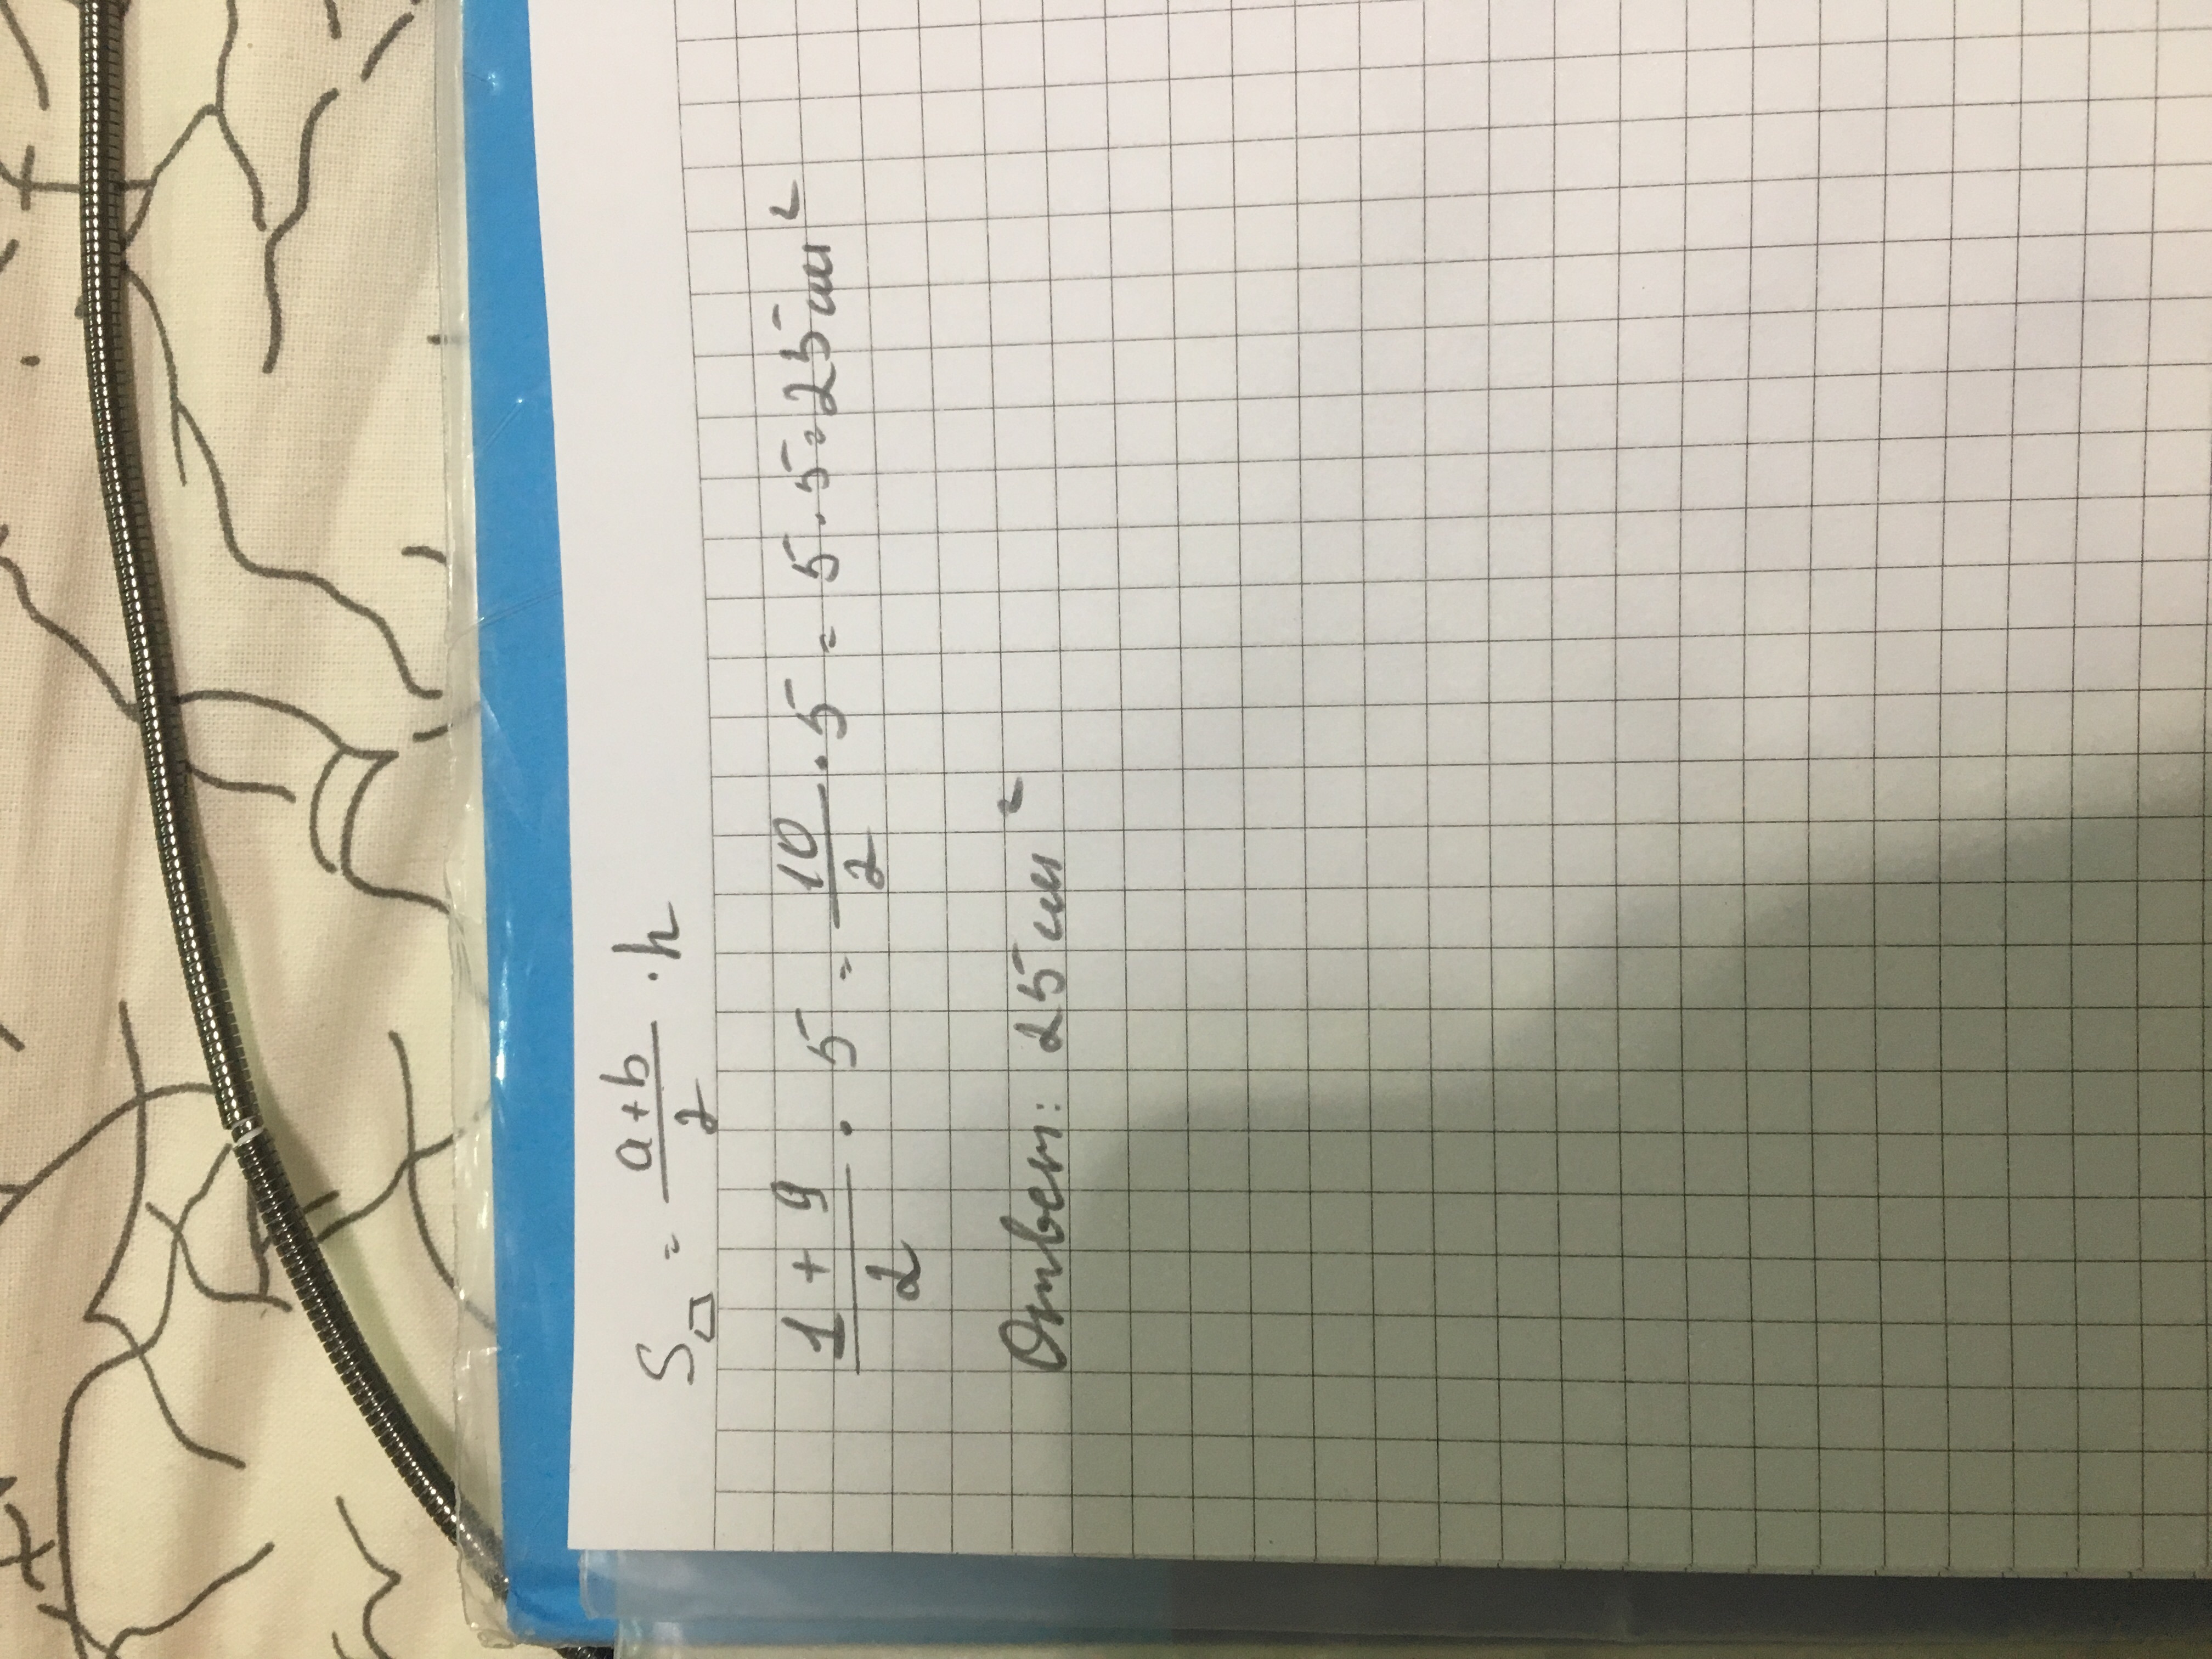 S▱ = (a+b)/2 · h
(1+9)/2 · 5 = 10/2 · 5 = 5 · 5 = 25 см²
Ответ: 25 см²